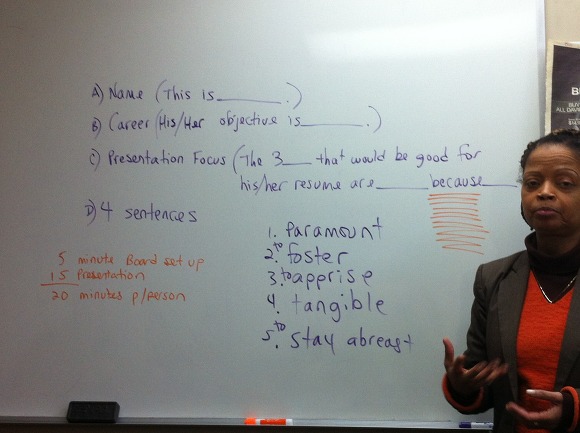 A) Name (This is ________.)
B) Career (His/Her objective is ________.)
C) Presentation Focus (The 3 ____ that would be good for
his/her resume are ______ because ____
D) 4 sentences
5 minute Board set up
15 Presentation
20 minutes p/person
1. Paramount
2. to foster
3. to apprise
4. tangible
5. to stay abreast
B
BU
ALL DAV